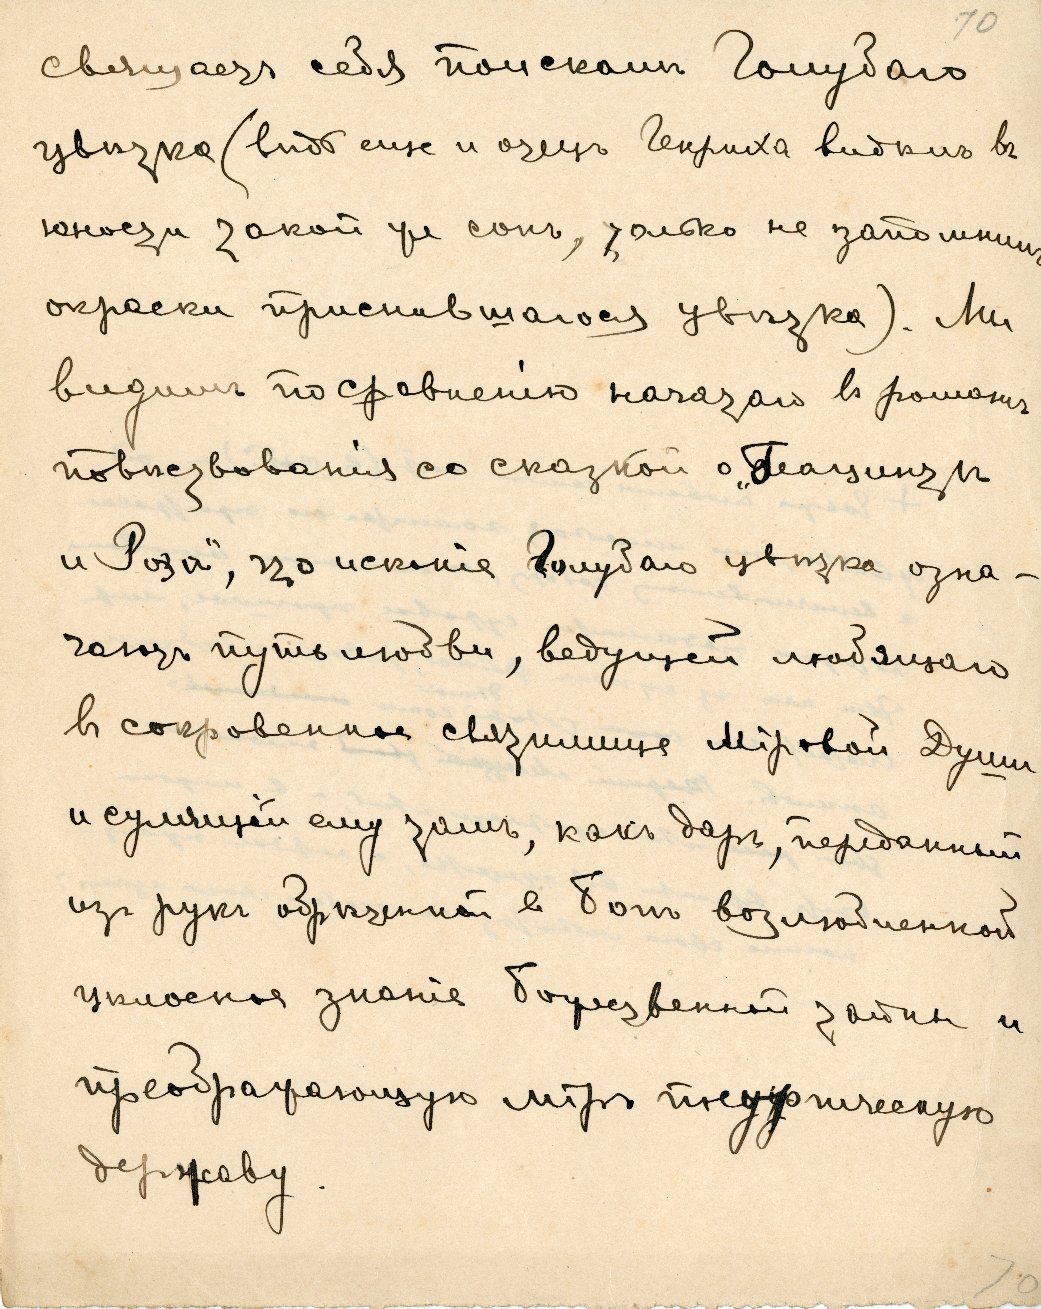 70
свящаетъ себя поискамъ Голубаго
цвѣтка (видь еще и отецъ Генриха видѣлъ въ
юности такой же сонъ, только не запомнилъ
окраски приснившагося цвѣтка). Мы
видимъ по сравненію начатаго въ романѣ
повѣствованія со сказкой о „Гіацинтѣ
и Розѣ", что исканіе Голубаго цвѣтка озна-
чаютъ путь любви, ведущей любящаго
въ сокровенное святилище Міровой Души
и сулящей ему тамъ, какъ даръ, переданный
изъ рукъ обрѣтенной въ Богѣ возлюбленной
цѣлостное знаніе божественной тайны и
преображающую міръ теургическую
державу.
70